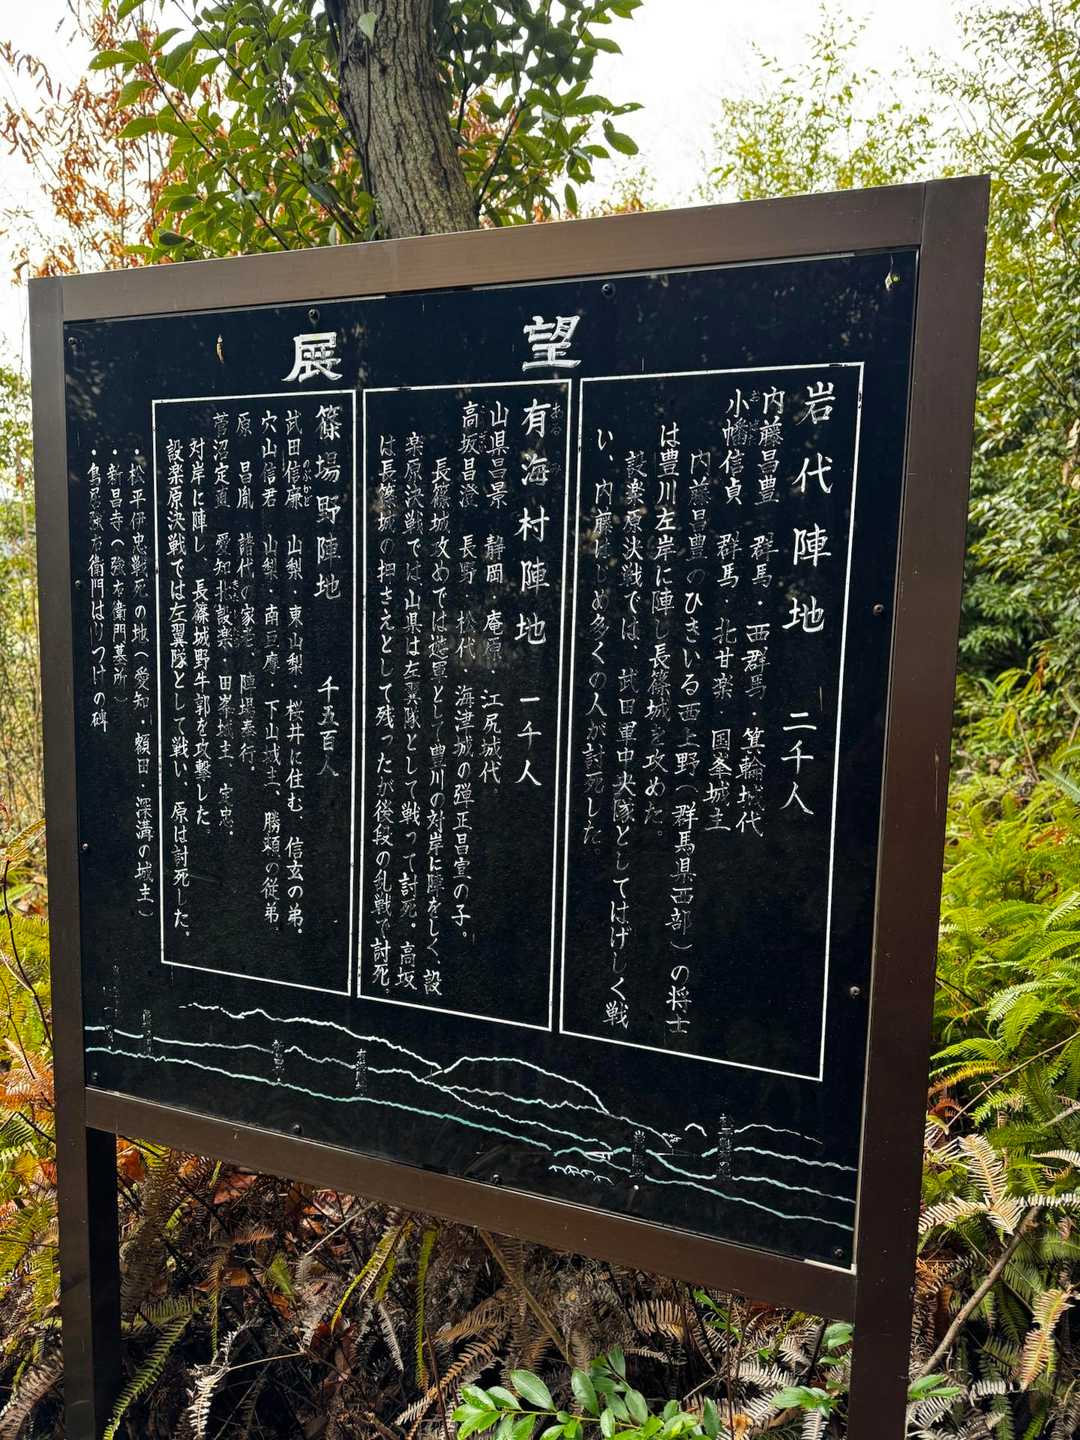 望展
岩代陣地 二千人
内藤昌豊 群馬・西群馬・箕輪城代
小幡信貞 群馬・北甘楽・国峯城主
内藤昌豊のひきいる西上野(群馬県西部)の将士
は豊川左岸に陣し長篠城を攻めた。
設楽原決戦では、武田軍中央隊としてはげしく戦
い、内藤はじめ多くの人が討死した。
有海村陣地 一千人
あるみ
山県昌景 静岡・庵原・江尻城代
高坂昌澄 長野・松代・海津城の弾正昌宣の子。
長篠城攻めでは遊軍として豊川の対岸に陣をしく、設
楽原決戦では山県は左翼隊として戦って討死。高坂
は長篠城の押さえとして残ったが後段の乱戦で討死。
篠場野陣地 千五百人
武田信廉 山梨・東山梨・桜井に住む 信玄の弟。
のぶかど
穴山信君 山梨・南巨摩・下山城主、勝頼の従弟。
原 昌胤 譜代の家老、陣場奉行。
菅沼定直 愛知北設楽・田峯城主・定忠。
対岸に陣し 長篠城野牛郭を攻撃した。
設楽原決戦では左翼隊として戦い、原は討死した。
・松平伊忠戦死の地(愛知・額田・深溝の城主)
・新昌寺(強右衛門墓所)
・鳥居強右衛門はりつけの碑